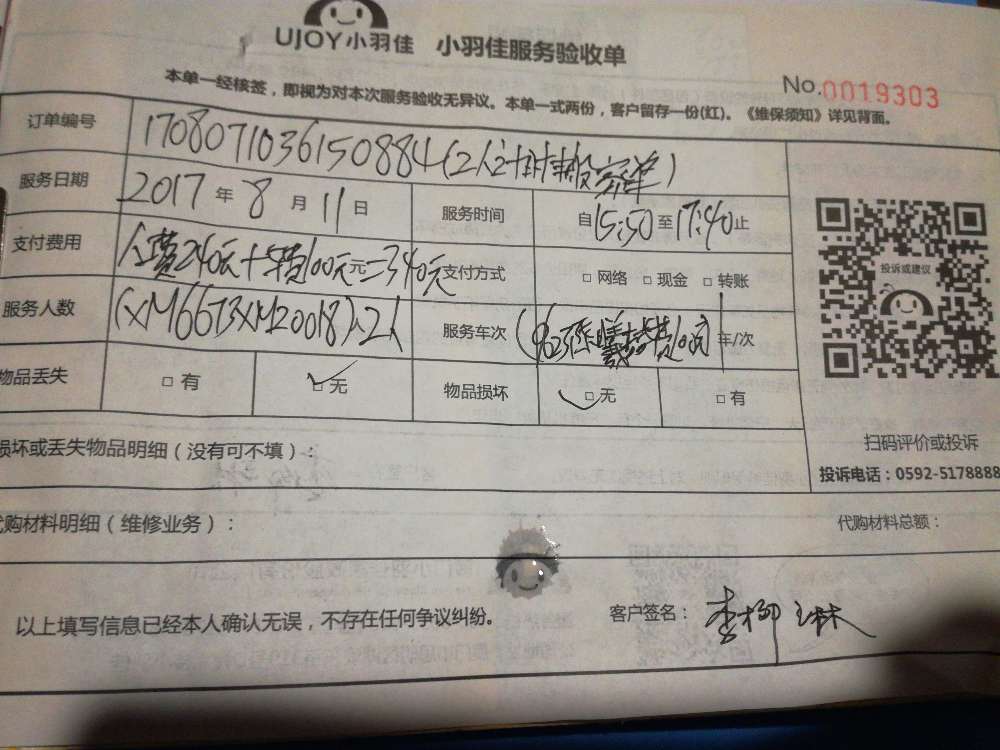 UJOY小羽佳 小羽佳服务验收单
No.0019303
本单一经核签，即视为对本次服务验收无异议。本单一式两份，客户留存一份(红)。《维保须知》详见背面。
订单编号 1708071036150884(2人计时
服务日期 2017 年 8 月 11 日 服务时间 自 15:50 至 17:40 止
支付费用 人费240元+车费100元元=340元 支付方式 □ 网络 □ 现金 □ 转账
服务人数 (XM6673XM20018)人2人 服务车次 年/次
物品丢失 □ 有 □ 无 物品损坏 □ 无 □ 有
投诉或建议
扫码评价或投诉
投诉电话：0592-5178888
损坏或丢失物品明细（没有可不填）：
代购材料明细（维修业务）： 代购材料总额：
以上填写信息已经本人确认无误，不存在任何争议纠纷。 客户签名：李柳